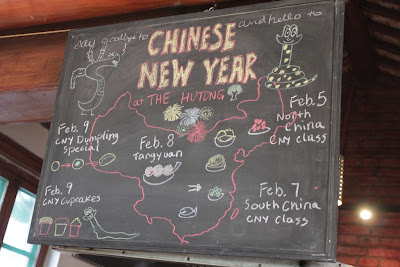 say goodbye to and hello to
CHINESE
NEW YEAR
at THE HUTONG
Feb. 5
North
China
CNY class
Feb. 9
CNY Dumpling
Special
Feb. 8
Tangyuan
Feb. 9
CNY Cupcakes
Feb. 7
South China
CNY class